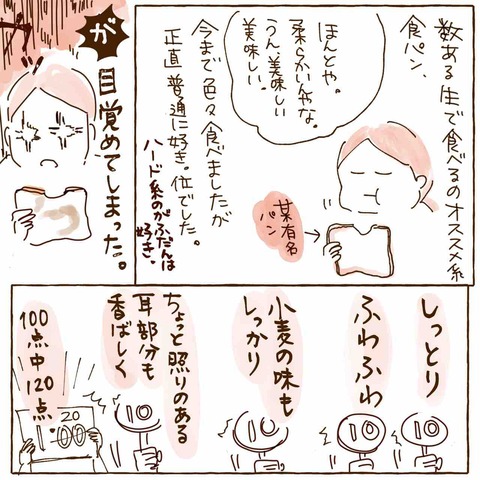 数ある生で食べるのオススメ系
食パン、
ほんとや。
柔らかいんやな。
うん、美味しい
美味しい。
某有名
パン
今まで色々食べましたが
正直普通に好き。位でした。
ハード系のがふだんは
好き。
が
目覚めてしまった。
しっとり
10
ふわふわ
10
小麦の味も
しっかり
10
ちょっと照りのある
耳部分も
香ばしく
10
100
点
中
120
点
120
100